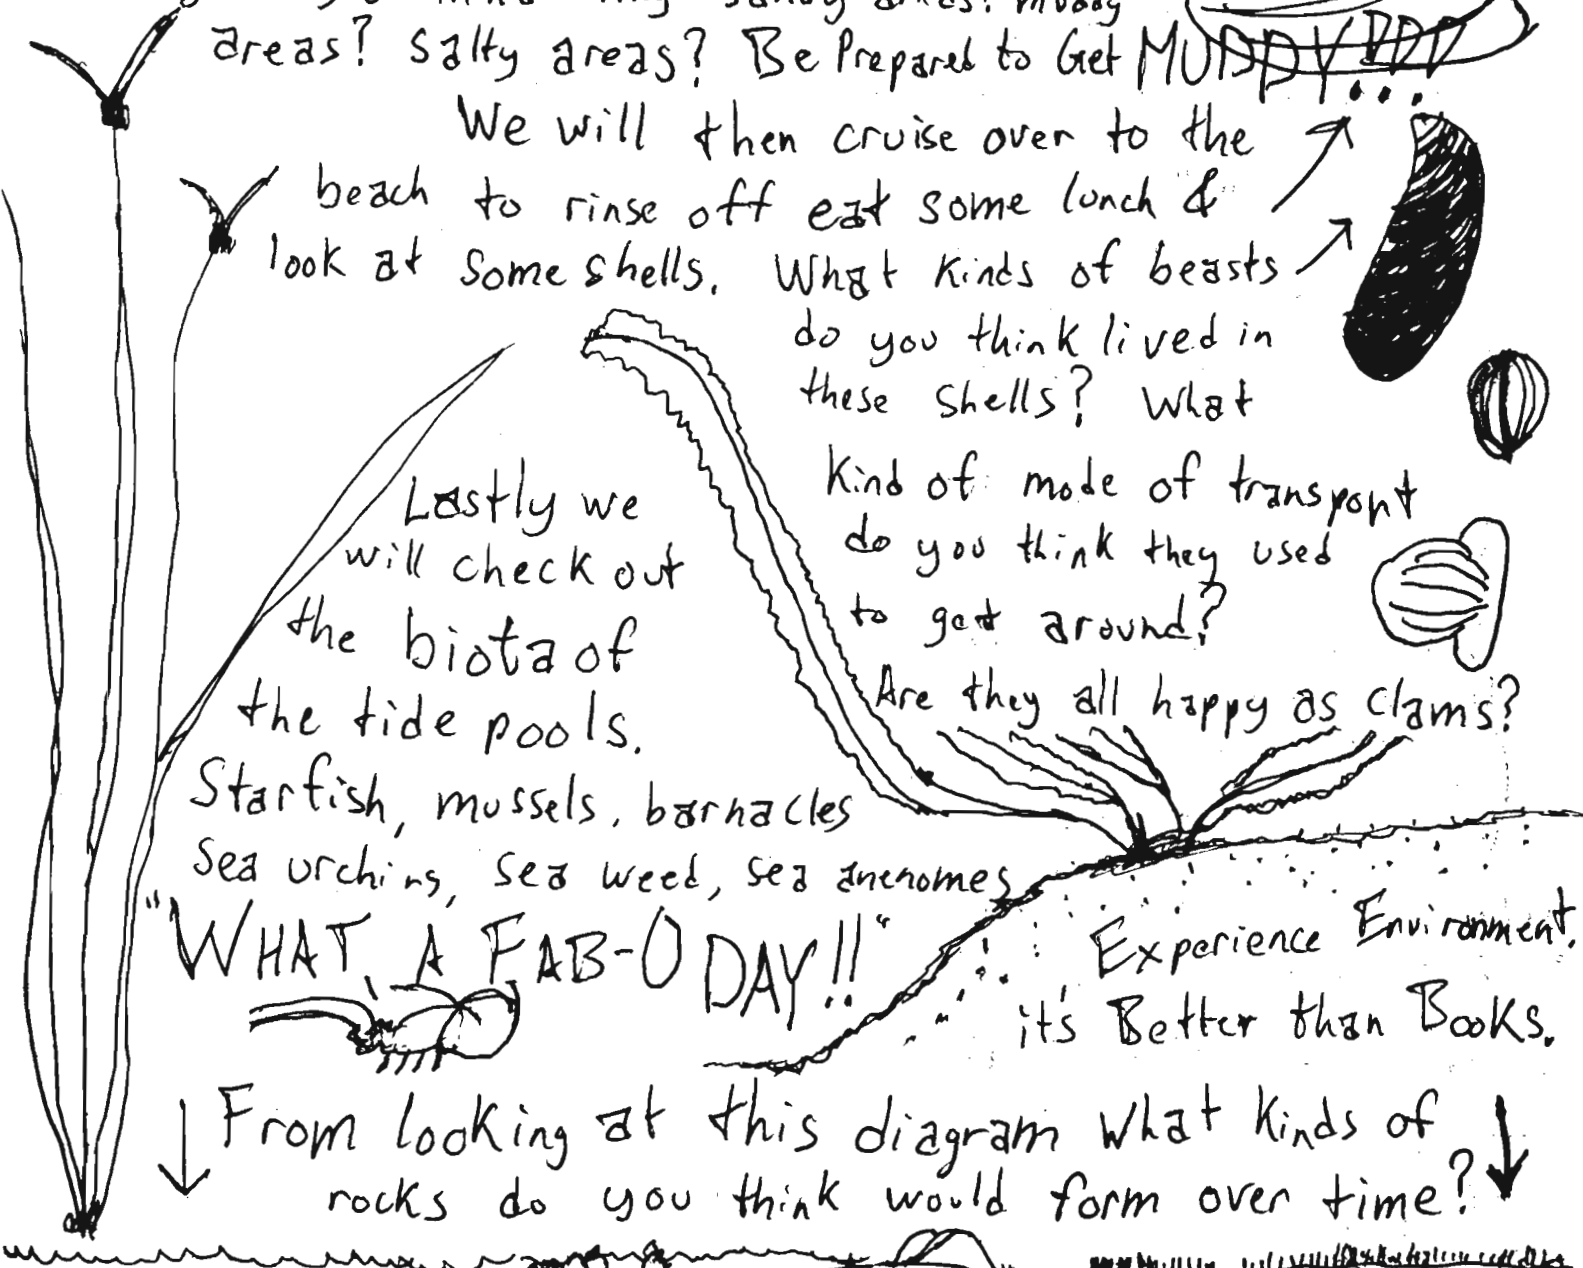 areas? Salty areas? Be Prepared to Get MUDDY!!!
We will then cruise over to the
beach to rinse off eat some lunch &
look at some shells. What kinds of beasts
do you think lived in
these shells? What
kind of mode of transport
do you think they used
to get around?
Are they all happy as clams?
Lastly we
will check out
the biota of
the tide pools.
Starfish, mussels, barnacles
Sea urchins, sea weed, sea anenomes
"WHAT A FAB-O DAY!!"
Experience Environment.
it's Better than Books.
From looking at this diagram what kinds of
rocks do you think would form over time?